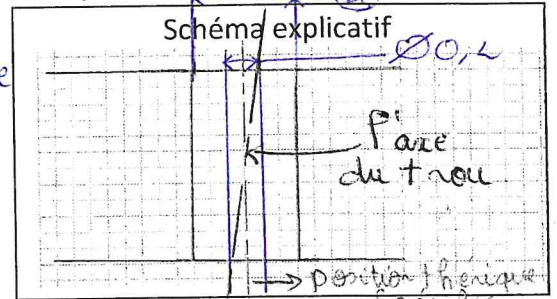 Schéma explicatif
e
Ø0,2
l'axe
du trou
position thérique